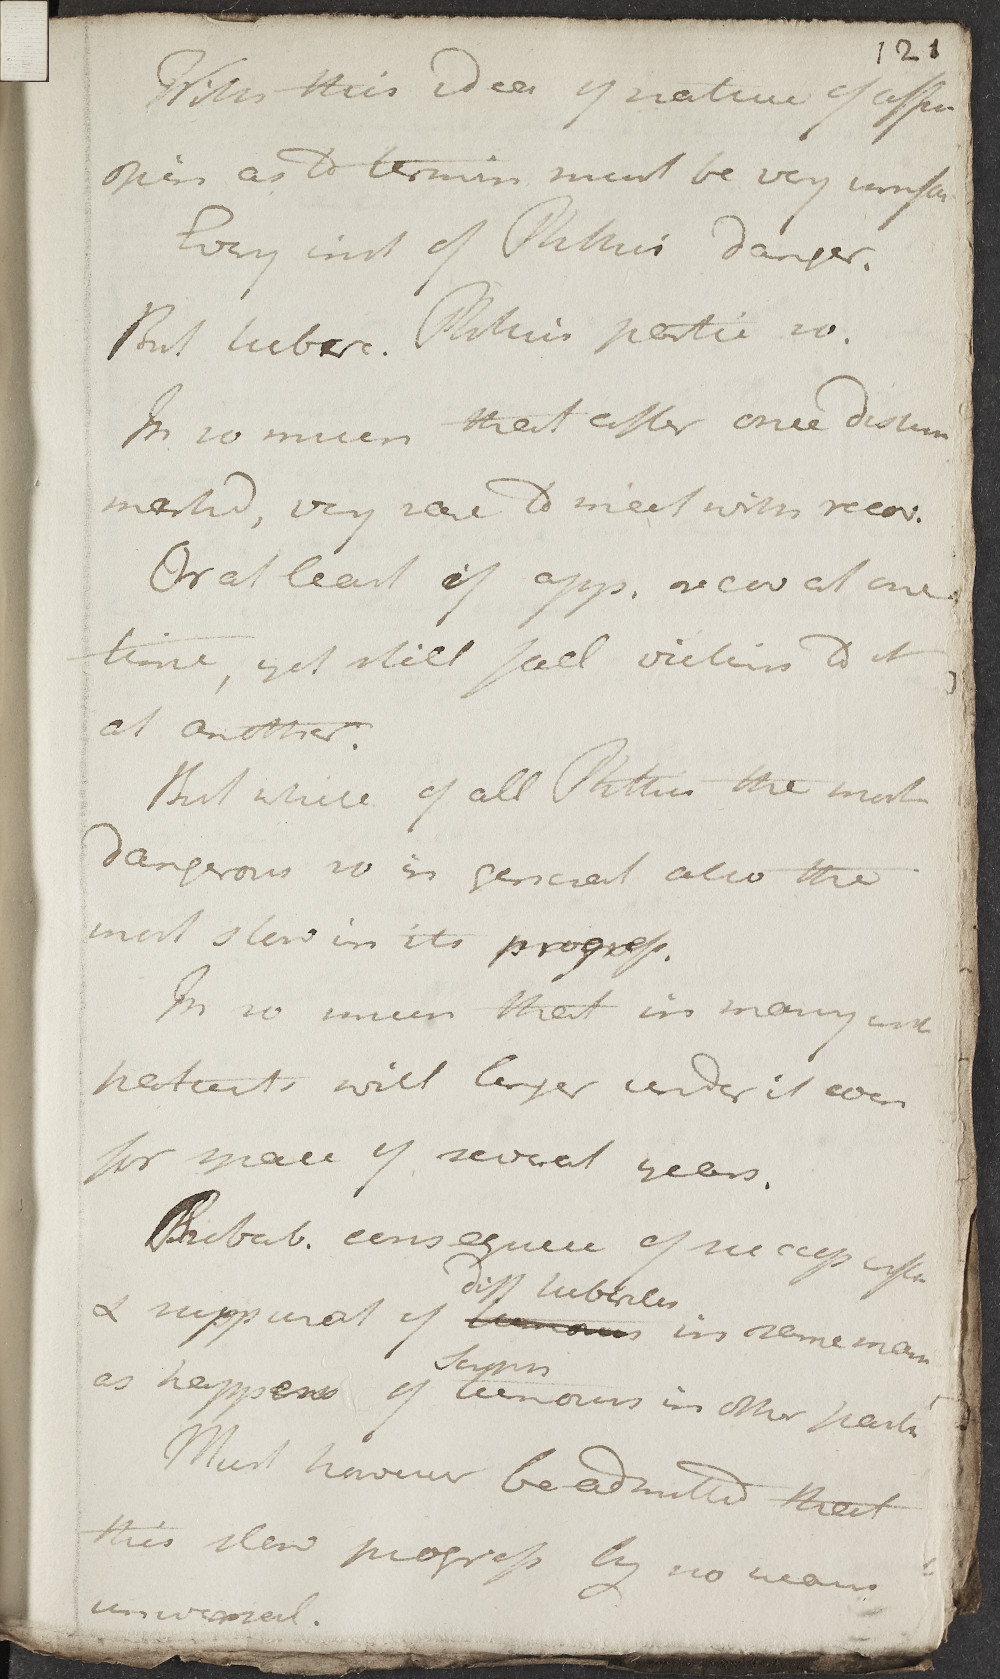 121
With this idea of nature of affn
opin as to termin must be very unfav
Every inst of Phthisis danger.
But tuberc. Phthisis partic so.
In so much that after once distin
marked, very rare to meet with recov.
Or at least if app. recov at one
time, yet still fall victims to it
at another.
But while of all Phthisis the most
dangerous so in general also the
most slow in its progress.
In so much that in many inst
patients will linger under it even
for space of several years.
Probab. consequence of success
diff tubercles
& suppurat of tumours in same man
Scroph
as happens of tumours in other parts
Must however be admitted that
this slow progress by no means
universal.